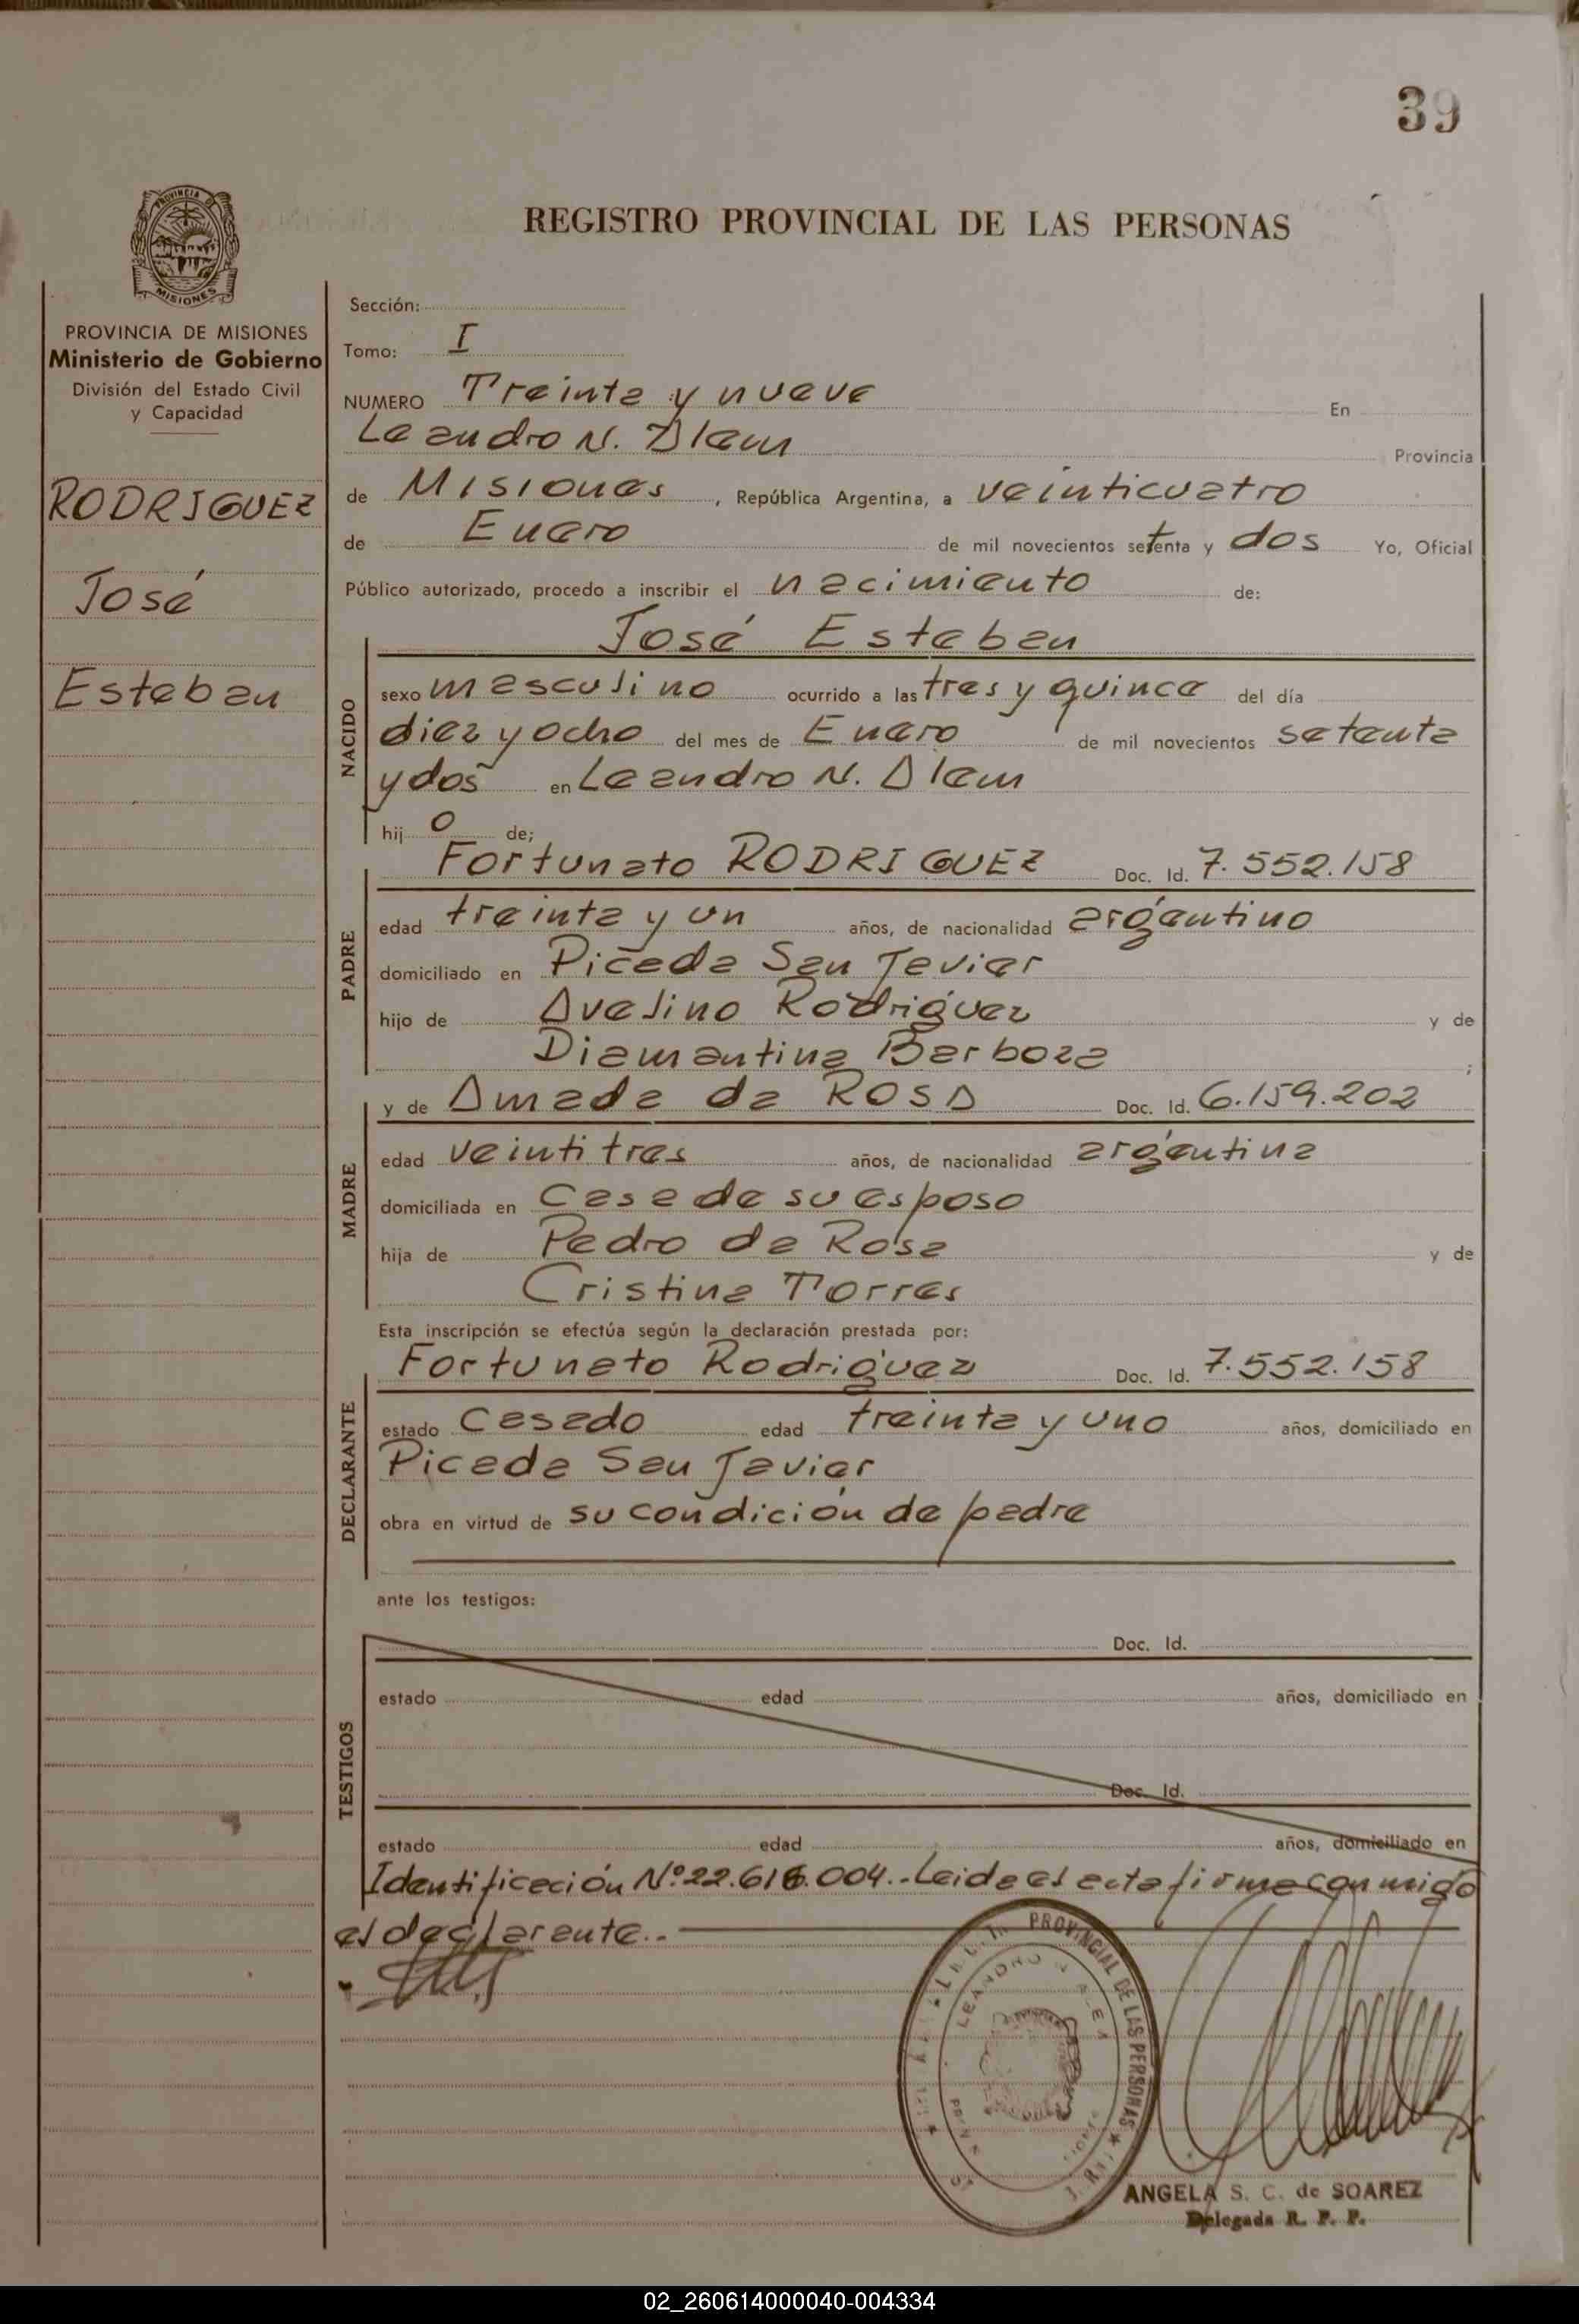 39
PROVINCIA DE
MISIONES
REGISTRO PROVINCIAL DE LAS PERSONAS
PROVINCIA DE MISIONES
Ministerio de Gobierno
División del Estado Civil
y Capacidad
RODRIGUEZ
José
Esteban
Sección:
Tomo: I
NUMERO Treinta y nueve En
Leandro N. Alem Provincia
de Misiones, República Argentina, a veinticuatro
de Enero de mil novecientos setenta y dos Yo, Oficial
Público autorizado, procedo a inscribir el nacimiento de:
José Esteban
NACIDO
sexo masculino ocurrido a las tres y quince del día
diez y ocho del mes de Enero de mil novecientos setenta
y dos en Leandro N. Alem
hijo de;
Fortunato RODRIGUEZ Doc. Id. 7.552.158
PADRE
edad treinta y un años, de nacionalidad argentino
domiciliado en Picada San Javier
hijo de Avelino Rodriguez y de
Diamantina Barboza ;
y de Amada da ROSA Doc. Id. 6.159.202
MADRE
edad veintitres años, de nacionalidad argentina
domiciliada en Casa de su esposo
hija de Pedro da Rosa y de
Cristina Torres
Esta inscripción se efectúa según la declaración prestada por:
Fortunato Rodriguez Doc. Id. 7.552.158
DECLARANTE
estado Casado edad treinta y uno años, domiciliado en
Picada San Javier
obra en virtud de su condición de padre
ante los testigos:
TESTIGOS
Doc. Id.
estado edad años, domiciliado en
Doc. Id.
estado edad años, domiciliado en
Identificación Nº 22.616.004.- Leida el acta firma conmigo
el declarante.-
PROVINCIAL DE LAS PERSONAS
LEANDRO N ALEM
ANGELA S. C. de SOAREZ
Delegada R. P. P.
02_260614000040-004334